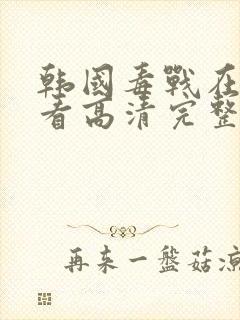 韩國毒戰在
看高清完整
再来一盤菇凉